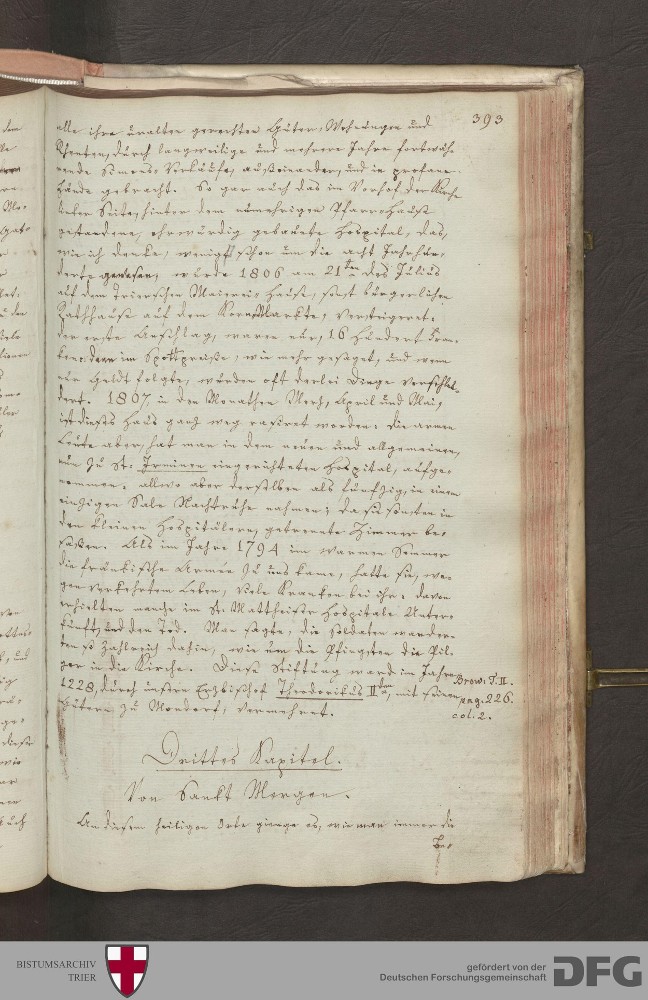 393
alle ihre uralten gerechten Güter, Wohnungen und
Renten, durch langweilige und mehrere Jahre fortwäh-
rende Verkäufe, auseinander, und in profane
Hände gebracht. So gar auch das im Vorhof der Kirche
linker Seite, hinter dem nunmehrigen Pfarr-Hause
gestandene, ehrwürdig gebauete Hospital, das,
wie ich denke, wenigst schon um die acht Jahrhun-
derte gewesen, wurde 1806 am 21ten des Julius
auf dem Trierschen Maierei-Hause, sonst bürgerlichen
Rathhause auf dem KornMarkte, versteigeret.
der erste Anschlag, waren nur, 16 hundert Fran-
ken: denn im Spottpreise, wie mehr gesaget, und wenn
nur Geldt folgte, wurden oft derlei Dinge verschleu-
dert. 1807 in den Monathen Merz, April und Mai,
ist dieses Haus ganz weg rasiret worden: die armen
Leute aber, hat man in dem neuen und allgemeinen,
nun zu St: Irminen eingerichteten Hospital, aufge-
nommen. allwo aber derselben als fünfzig, in einem
einzigen Sale Nachtruhe nahmen; da sie sonsten in
den kleinen Hospitälern, getrennte Zimmer be-
saßen. Als im Jahre 1794 im warmen Sommer
die fränkische Armée zu uns kame, hatte sie, we-
gen verkehrtem Leben, viele Kranken bei ihr: davon
erhielten manche im St. Mattheiser Hospitale Unter-
kunft, und den Tod. Man sagte, die Soldaten wander-
ten so zahlreich dahin, wie um die Pfingsten die Pil-
ger in die Kirche. Diese Stiftung ward im Jahre
1228, durch unsern Erzbischof Theoderikus IIten, mit seinen
Gütern zu Mondorf, vermehret.
Brow: T. II.
pag. 226.
col: 2.
Drittes Kapitel.
Von Sankt Mergen.
An diesem heiligen Orte gienge es, wie man immer die
Be-
BISTUMSARCHIV
TRIER
gefördert von der
Deutschen Forschungsgemeinschaft
DFG